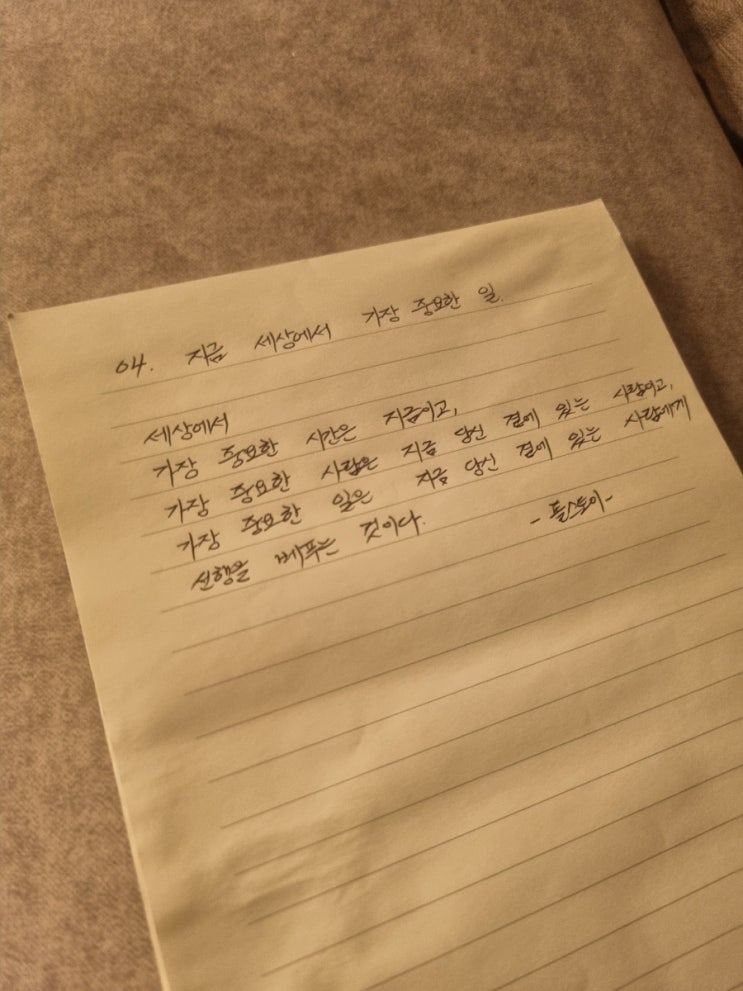 04. 지금 세상에서 가장 중요한 일
세상에서
가장 중요한 시간은 지금이고,
가장 중요한 사람은 지금 당신 곁에 있는 사람이고,
가장 중요한 일은 지금 당신 곁에 있는 사람에게
선행을 베푸는 것이다. -톨스토이-